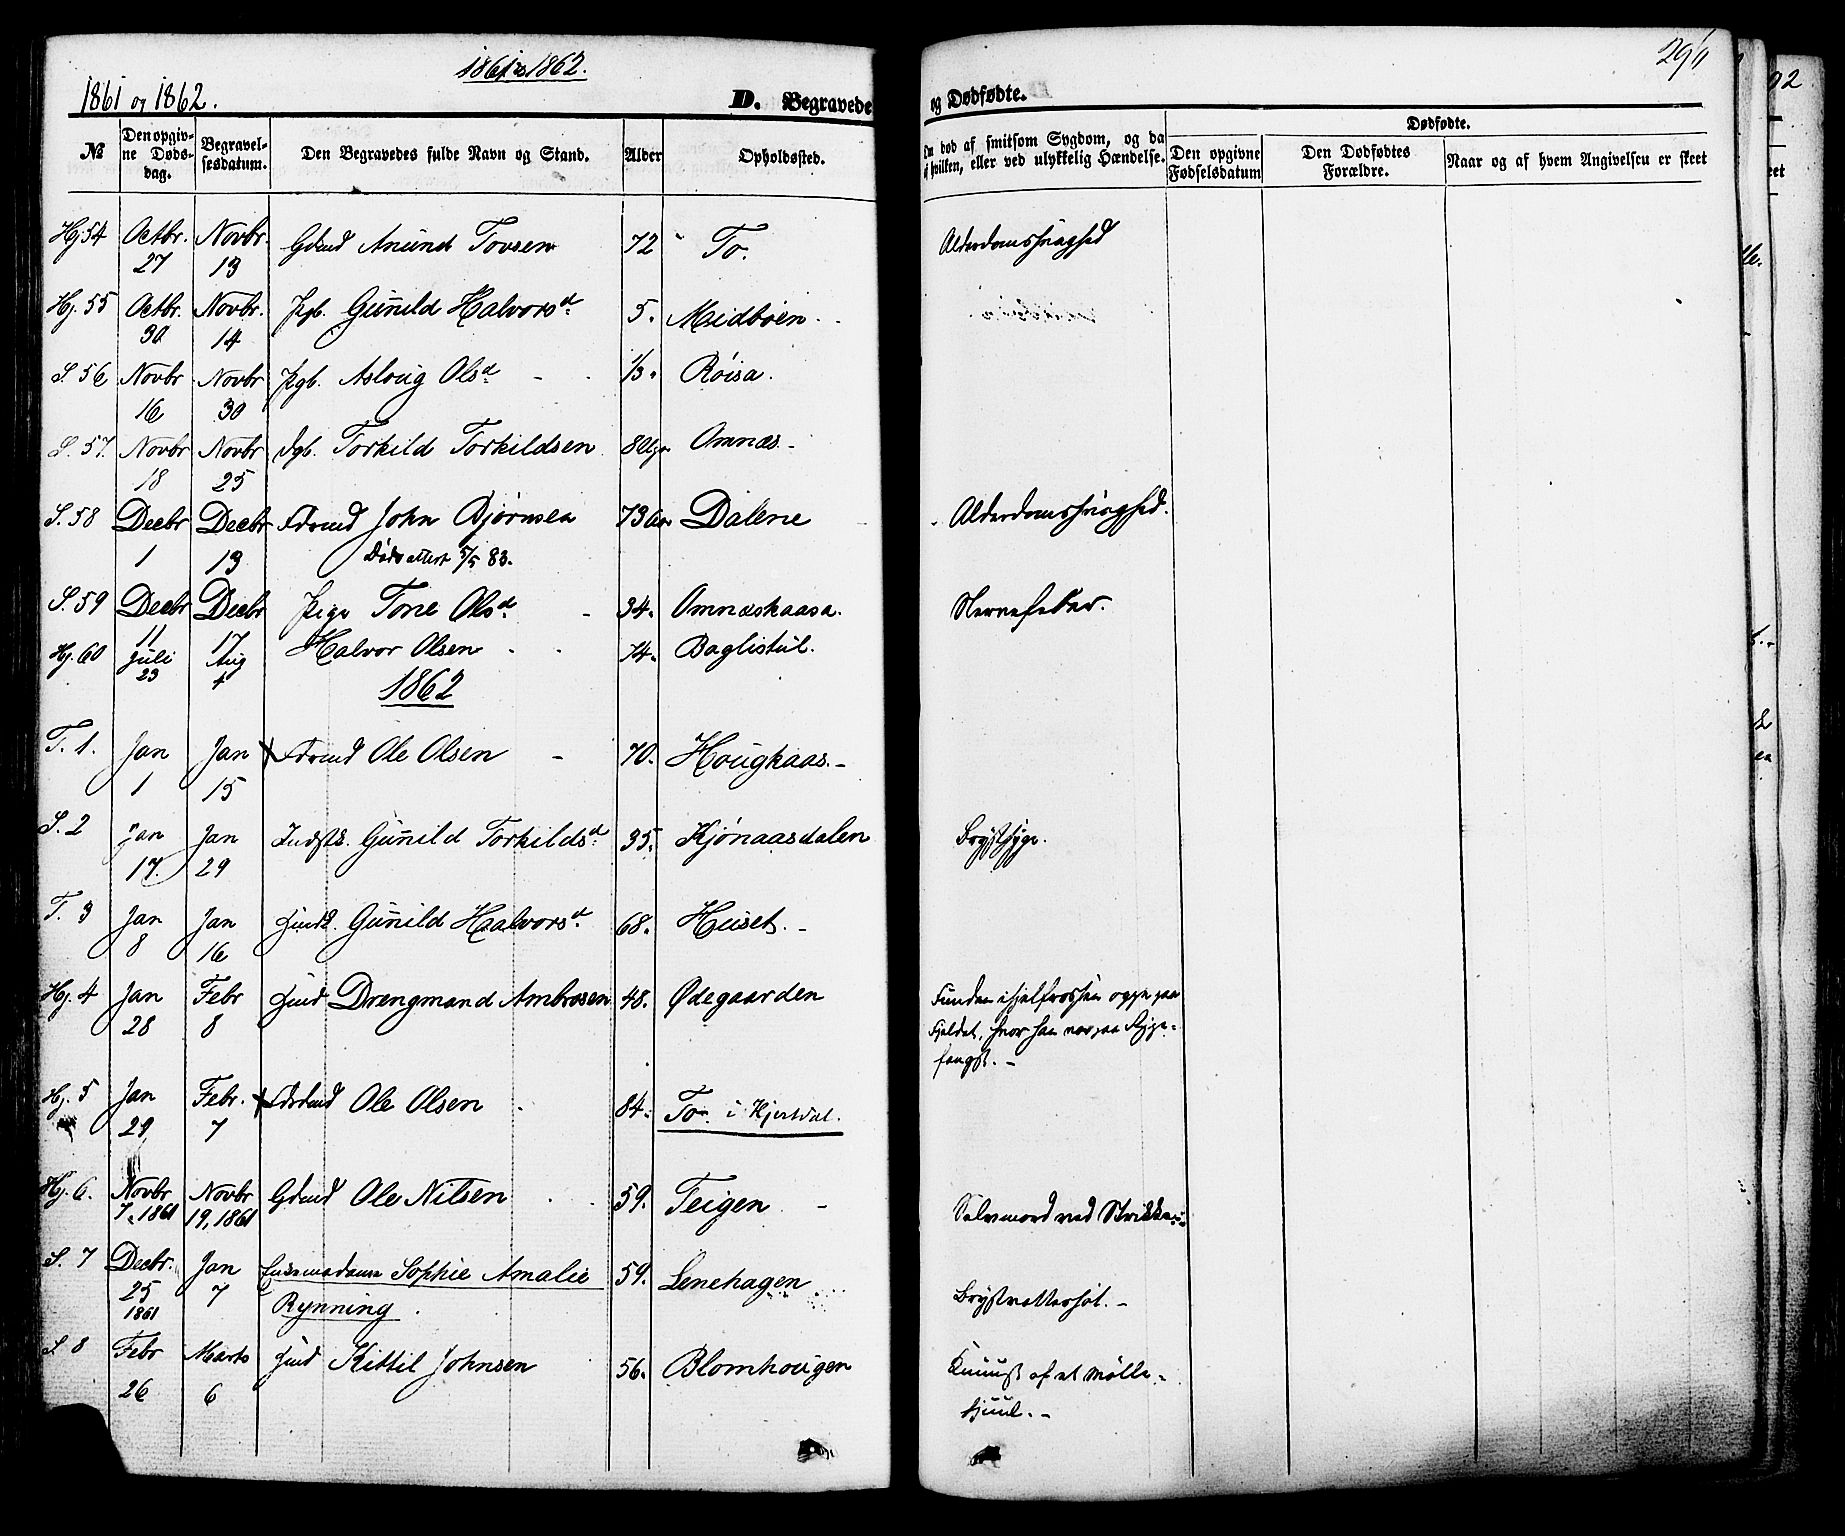 1861 og 1862.
1861 og 1862.
D. Begravede
og Dødfødte.
296
No
Den opgivne Dødsdag.
Begravelsesdatum.
Den Begravedes fulde Navn og Stand.
Alder
Opholdssted.
død af smitsom Sygdom, og da
af hvilken, eller ved ulykkelig Hændelse.
Dødfødte.
Den opgivne Fødselsdatum
Den Dødfødtes Forældre.
Naar og af hvem Angivelsen er skeet
Hj 54 Octbr. 27 Novbr. 13 Gdmd Anund Tovsen 72 To. Alderdomssvaghed
Hj. 55 Octbr. 30 Novbr. 14 Pgb. Gunild Halvorsd. 5. Midbøen.
S. 56 Novbr 16 Novbr 30 Pgb. Asloug Olsd. 1/3. Røisa.
S. 57. Novbr 18 Novbr 25 Dgb. Torkild Torkildsen 8 Omnæs.
S. 58 Decbr 1 Decbr 13 Fdrmd John Bjørnsen 73 Dalene Alderdomssvaghed.
Dødsattest 5/5 83.
S. 59 Decbr 11 Decbr 17 Pige Tone Olsd. 34. Omnæskaasa. Nervefeber.
Hj. 60 Juli 23 Aug 4 Halvor Olsen 74. Baglistul.
1862
T. 1. Jan 1 Jan 15 Fdrmd Ole Olsen 70. Hougkaas.
S. 2 Jan 17. Jan 29 Indstk. Gunild Torkildsd. 35. Kjónaasdalen Brystsyge.
T. 3 Jan 8 Jan 16 Gunild Halvorsd. 68. Huset.
Hj. 4 Jan 28 Febr 8 Drengmand Ambrosen 48. Ødegaarden Funden ihjelfrossen oppe paa
Fjeldet, hvor han var paa Rype-
fangst.
Hj. 5 Jan 29 Febr. 7 Fdrmd Ole Olsen 84. To. i Hjertdal.
Hj. 6. Novbr 7, 1861 Novbr 19, 1861 Gdmd Ole Nilsen 59. Teigen Selvmord ved Strikken.
S. 7 Decbr. 25 1861 Jan 7 Enkemadame Sophie Amalie 59. Lenehagen
Rynning. Brystvattersot.
S. 8 Febr 26 Marts 6 Kittil Johnsen 56. Blomhougen Knuust af et Mølle-
hjuul.